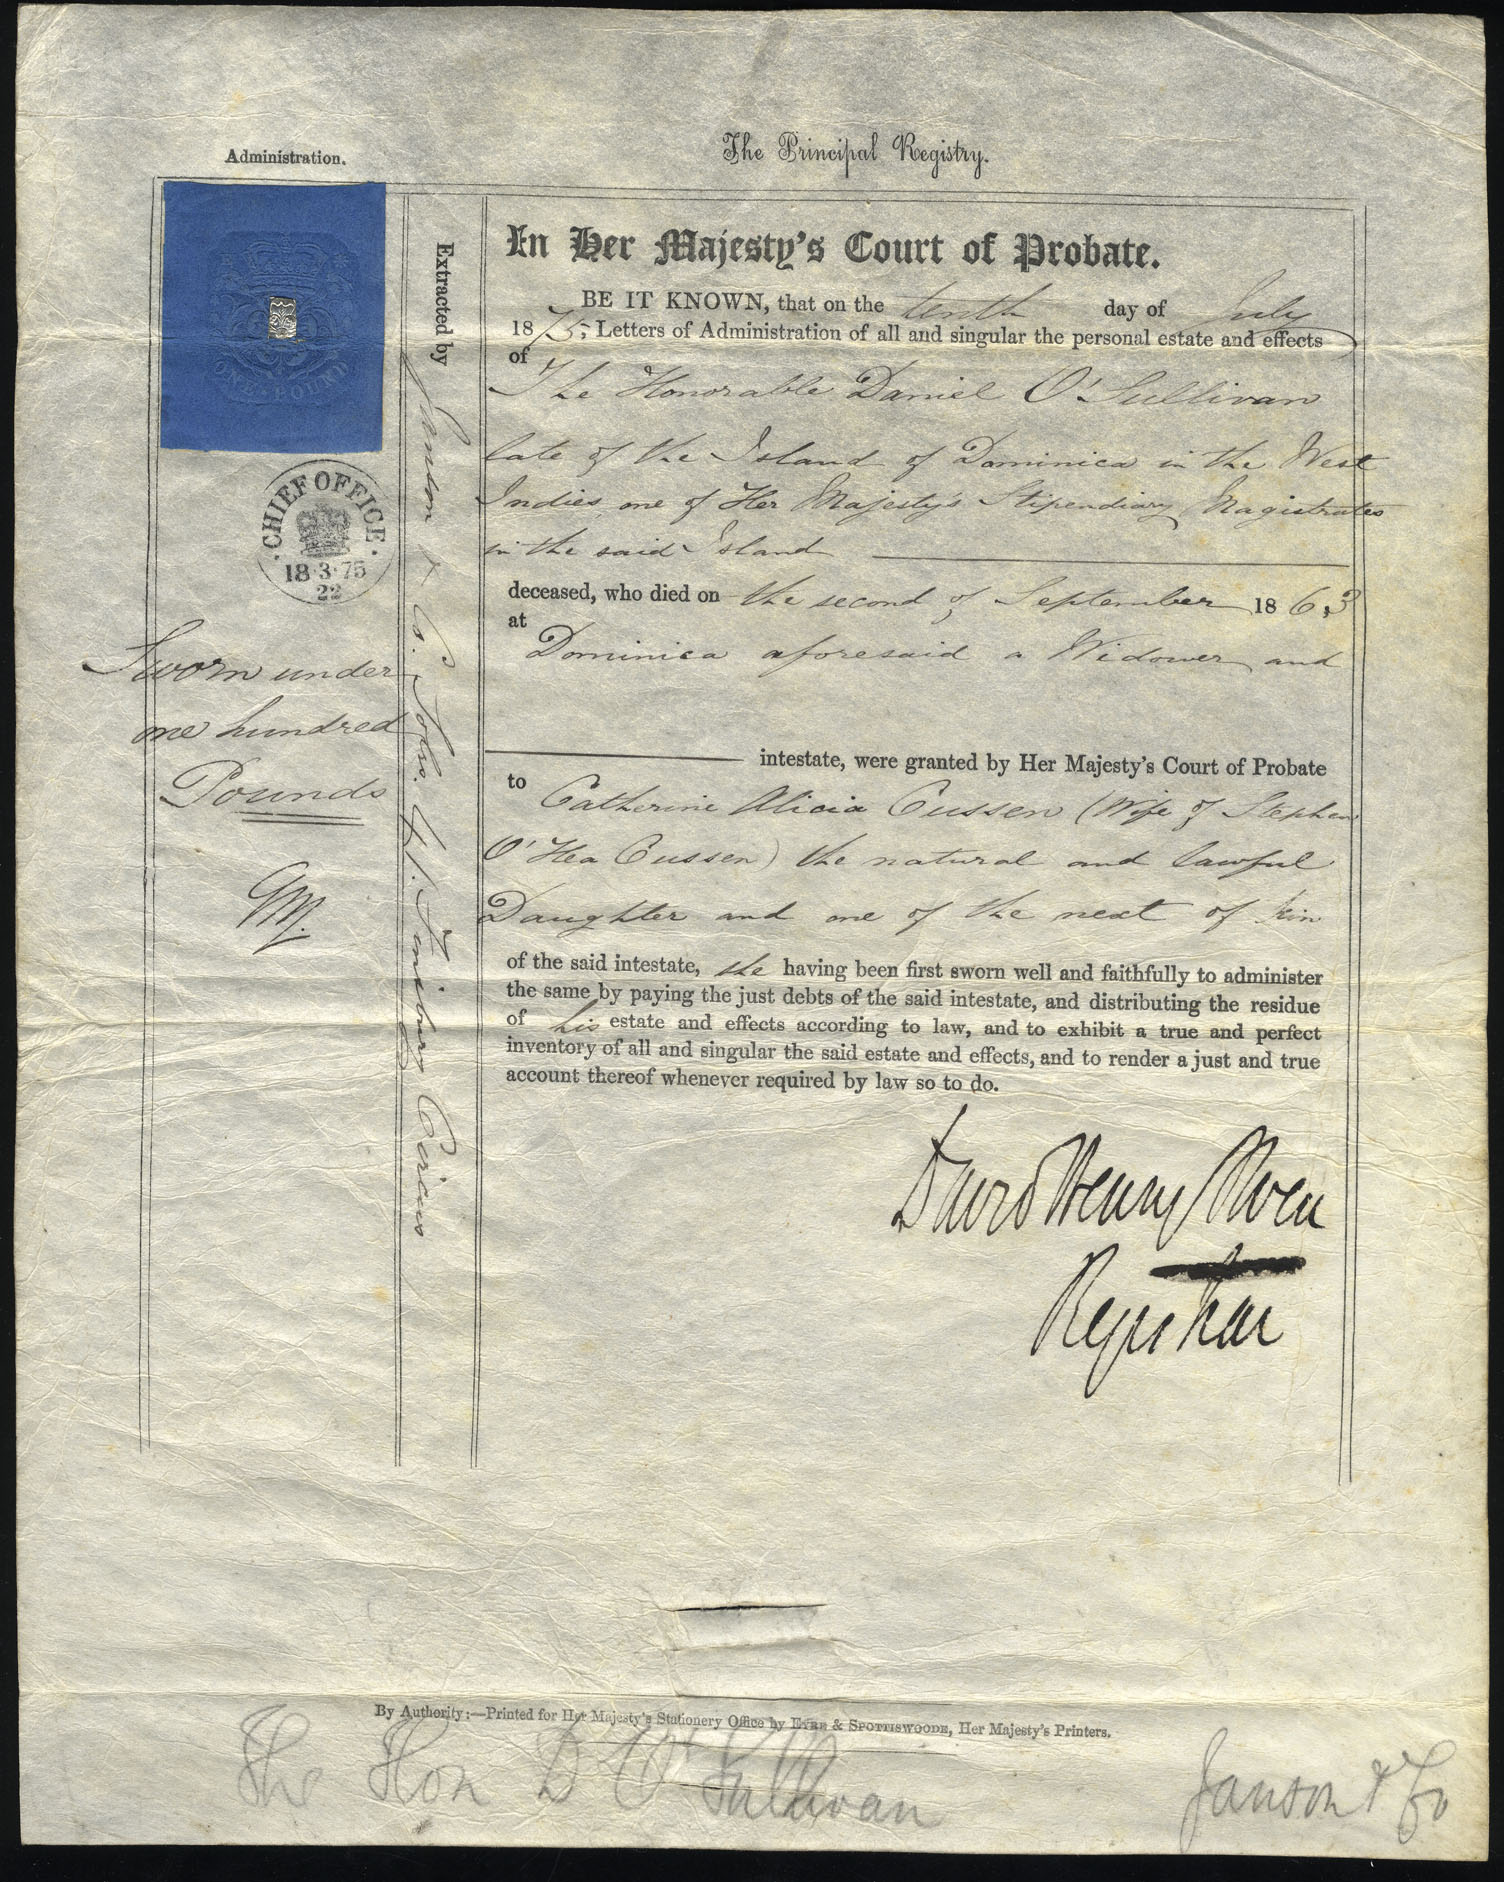 Administration.
The Principal Registry.
ONE POUND
CHIEF OFFICE
18·3·75
22
Sworn under
one hundred
Pounds
Extracted by Janson & Co. Sols. 41. Finsbury Circus
In Her Majesty's Court of Probate.
BE IT KNOWN, that on the tenth day of July
1875; Letters of Administration of all and singular the personal estate and effects
of
The Honorable Daniel O'Sullivan
late of the Island of Dominica in the West
Indies, one of Her Majesty's Stipendiary Magistrates
in the said Island
deceased, who died on the second of September 1863
at
Dominica aforesaid a Widower and
intestate, were granted by Her Majesty's Court of Probate
to Catherine Alicia Cussen (Wife of Stephen
O'Hea Cussen) the natural and lawful
Daughter and one of the next of kin
of the said intestate, she having been first sworn well and faithfully to administer
the same by paying the just debts of the said intestate, and distributing the residue
of his estate and effects according to law, and to exhibit a true and perfect
inventory of all and singular the said estate and effects, and to render a just and true
account thereof whenever required by law so to do.
David Henry Owen
Registrar
By Authority:—Printed for Her Majesty's Stationery Office by EYRE & SPOTTISWOODE, Her Majesty's Printers.
The Hon D O'Sullivan
Janson & Co